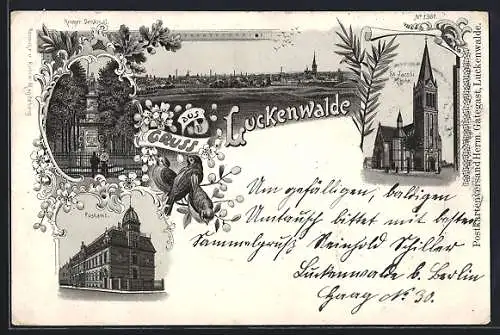 Krieger Denkmal.
No 1381.
Gesammtansicht
St. Jacobi
Kirche.
GRUSS
AUS
LUCKENWALDE
Postamt.
Postkartenversand Herm. Gategast, Luckenwalde.
Um gefälligen, baldigen
Umtausch bittet mit bestem
Sammelgruß Reinhold Schiller
Luckenwalde b. Berlin
Haag No 30.